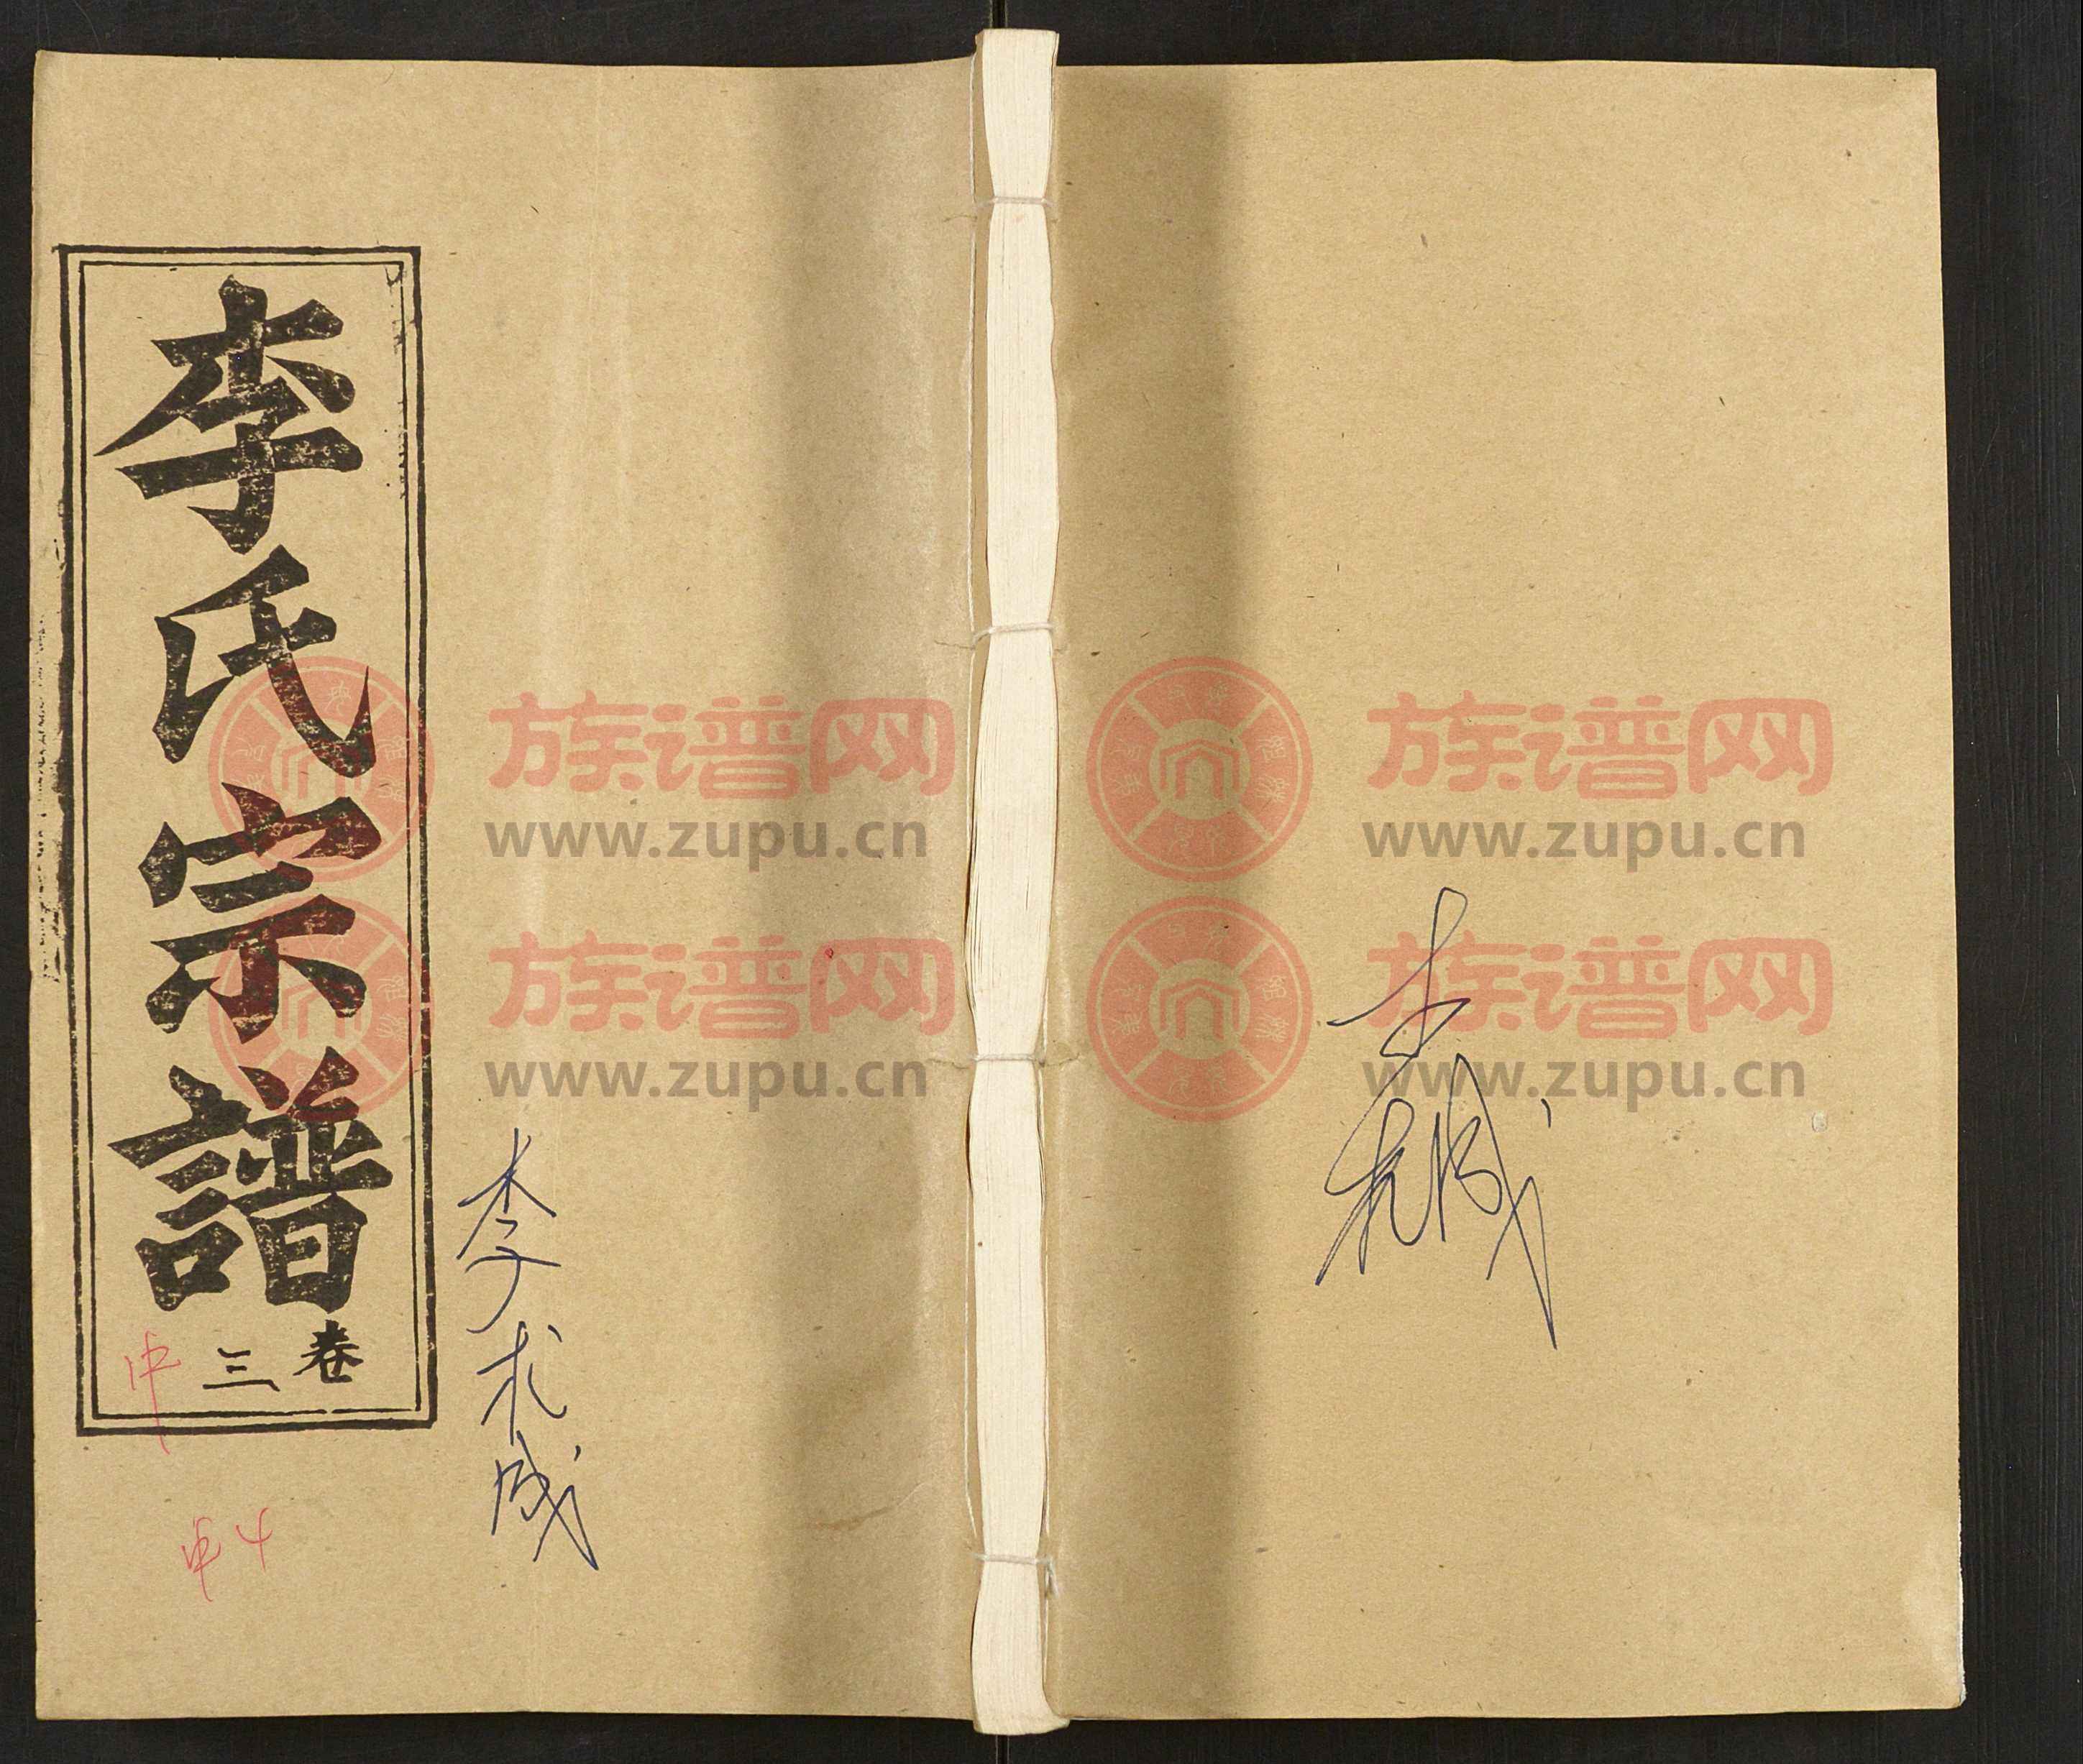 李氏宗譜
卷三
中
中4
李求成
族谱网
www.zupu.cn
族谱网
www.zupu.cn
族谱网
www.zupu.cn
族谱网
www.zupu.cn